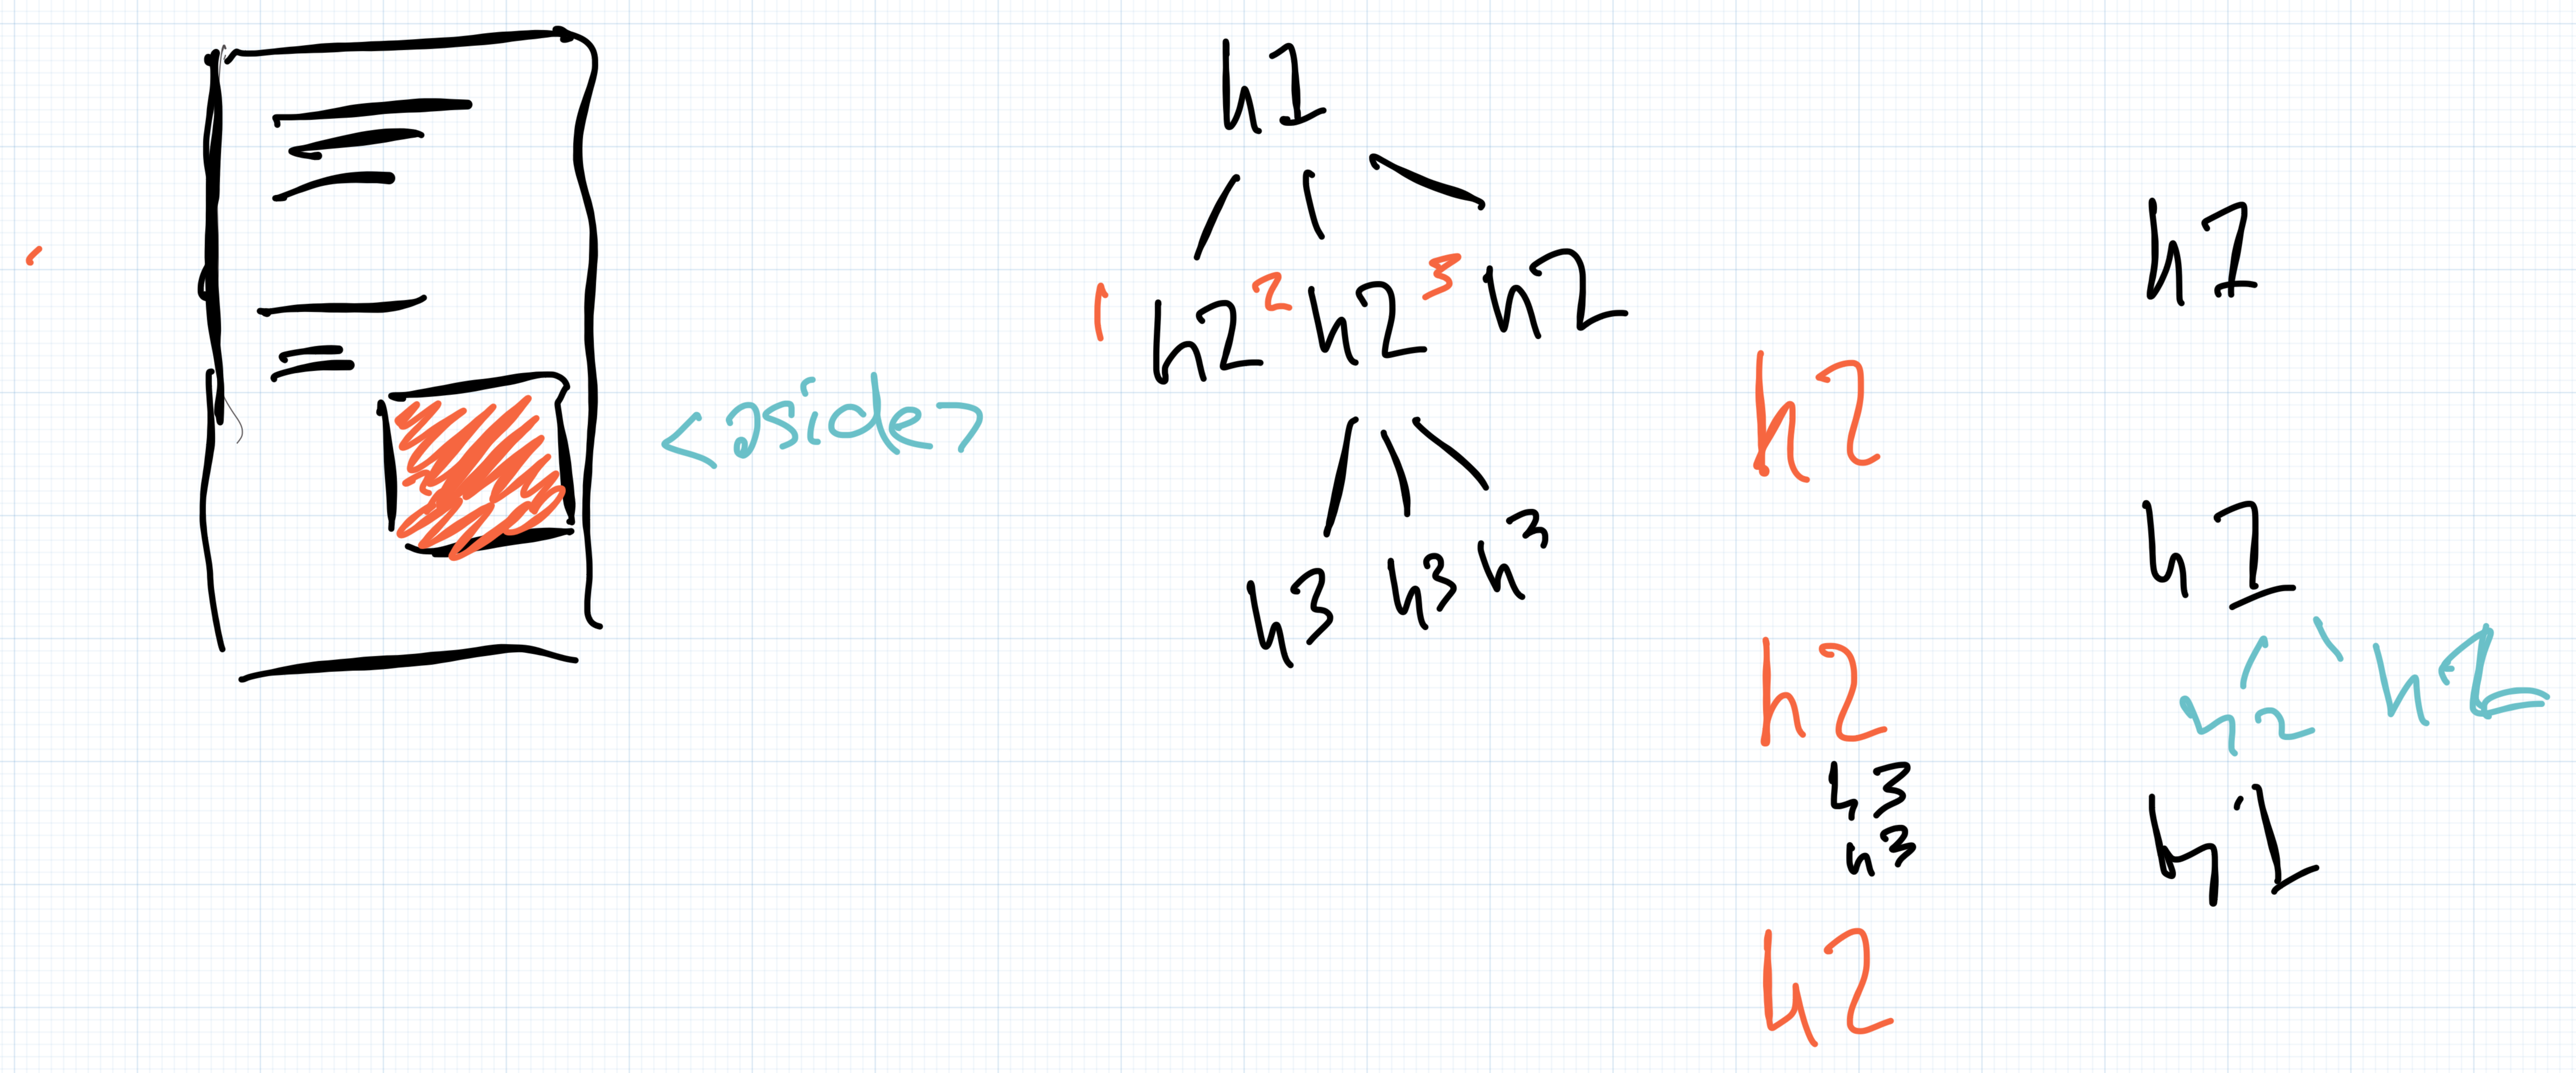 <aside>
h1
1 h2 2 h2 3 h2
h3 h3 h3
h2
h2
h3
h3
h2
h1
h1
h2 h2
h1